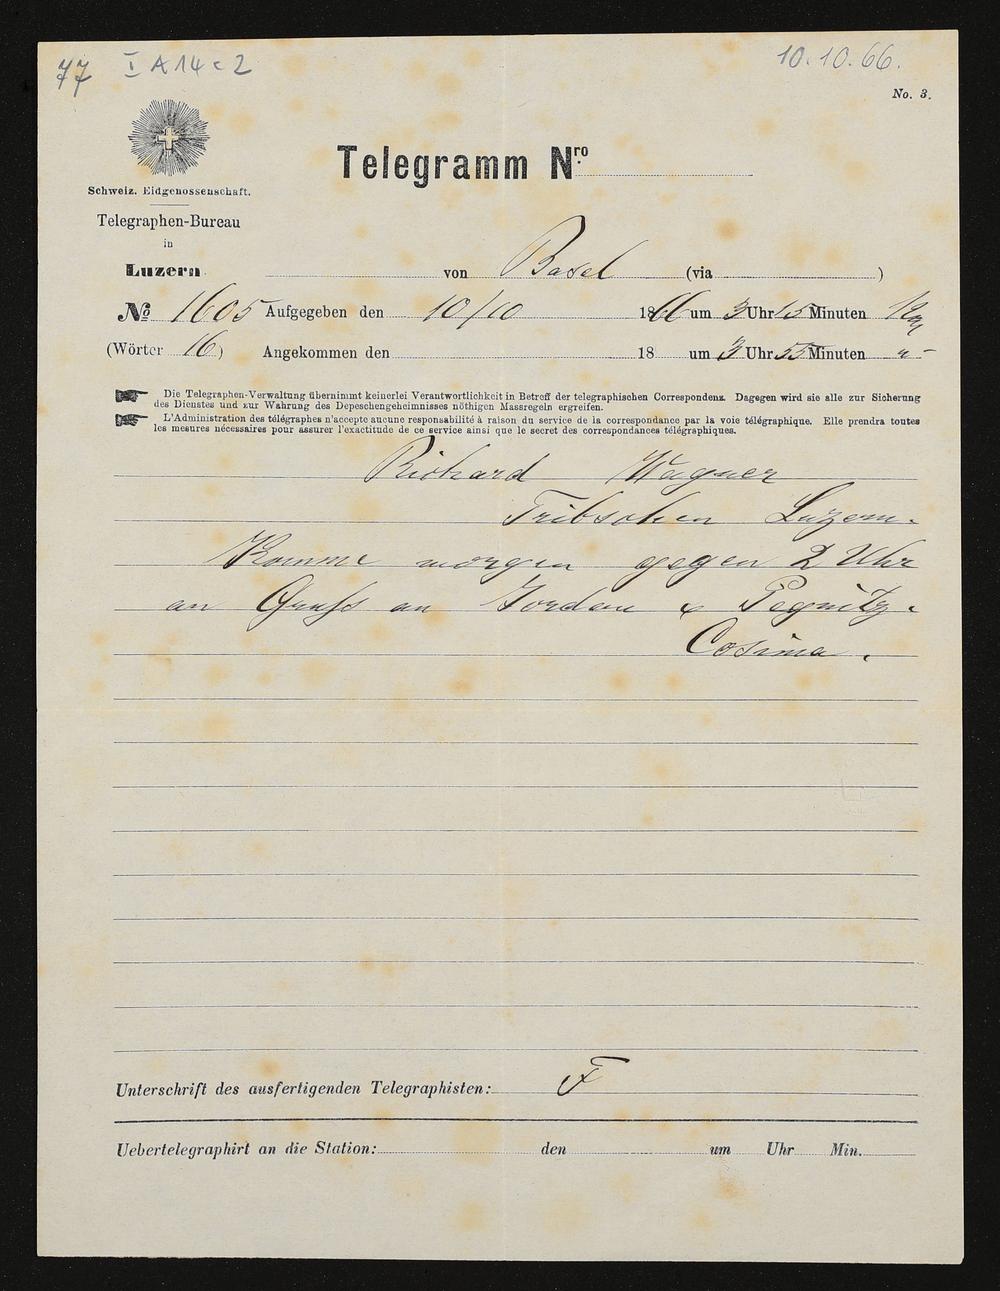 77 I A 14 c 2
10.10.66.
No. 3.
Telegramm Nro.
Schweiz. Eidgenossenschaft.
Telegraphen-Bureau
in
Luzern von Basel (via )
No 1605 Aufgegeben den 10/10 1866 um 3 Uhr 15 Minuten
(Wörter 16) Angekommen den 18 um 3 Uhr 55 Minuten "
Die Telegraphen-Verwaltung übernimmt keinerlei Verantwortlichkeit in Betreff der telegraphischen Correspondenz. Dagegen wird sie alle zur Sicherung
des Dienstes und zur Wahrung des Depeschengeheimnisses nöthigen Massregeln ergreifen.
L'Administration des télégraphes n'accepte aucune responsabilité à raison du service de la correspondance par la voie télégraphique. Elle prendra toutes
les mesures nécessaires pour assurer l'exactitude de ce service ainsi que le secret des correspondances télégraphiques.
Richard Wagner
Tribschen Luzern.
Komme morgen gegen 2 Uhr
an Gruss an Jordan & Pegnitz.
Cosima.
Unterschrift des ausfertigenden Telegraphisten: F
Uebertelegraphirt an die Station: den um Uhr Min.